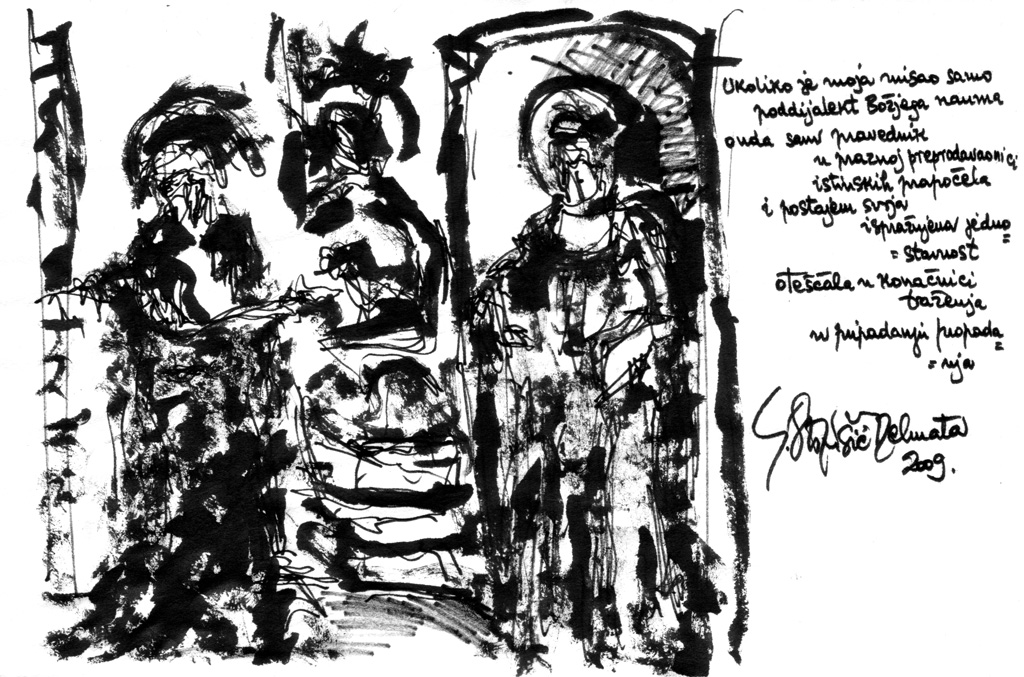 Ukoliko je moja misao samo
poddijalekt Božjega nauma
onda sam pravednik
u praznoj preprodavaonici
istinskih prapočela
i postajem svoja
ispražnjena jedno=
= stavnost
otešćala u konačnici
traženja
u pripadanju propada=
= nja
S. Stojšić Delmata
2009.